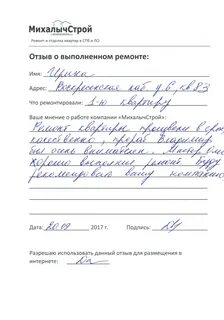 МихалычСтрой
Ремонт и отделка квартир в СПб и ЛО
Отзыв о выполненном ремонте:
Имя: Ирина
Адрес: Воскресенская наб д.6, кв 83
Что ремонтировали: 1-ю квартиру
Ваше мнение о работе компании «МихалычСтрой»:
Ремонт квартиры произвели в срок,
качественно, прораб Владимир
был очень внимателен. Мастер Олег
хорошо выполнил ремонт. Буду
рекомендовать вашу компанию
Дата: 20.09 2017 г. Подпись:
Разрешаю использовать данный отзыв для размещения в
интернете: Да